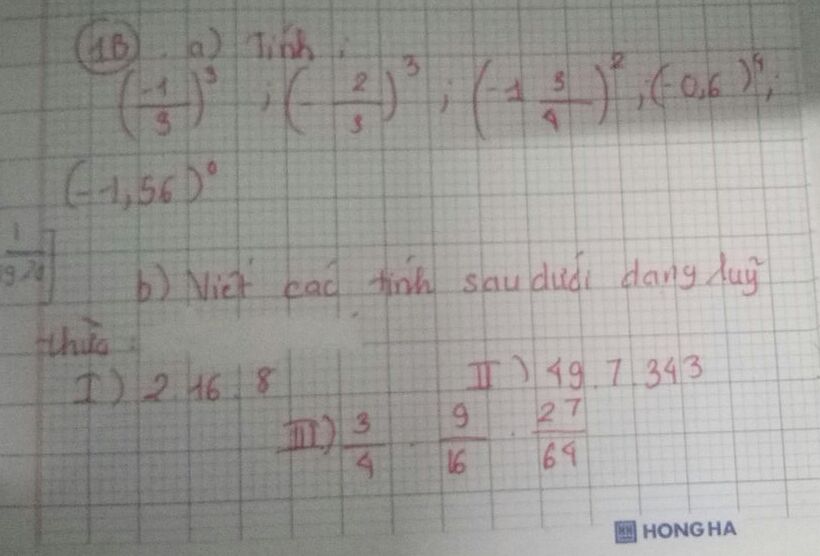 1B. a) Tính:
(-1/3)^3 ; (-2/3)^3 ; (-1 3/4)^2 ; (-0,6)^4 ;
(-1,56)^0
b) Viết các tính sau dưới dạng luỹ
thừa:
I) 2 16 . 8 II) 49 . 7 . 343
III) 3/4 . 9/16 . 27/64
HONG HA